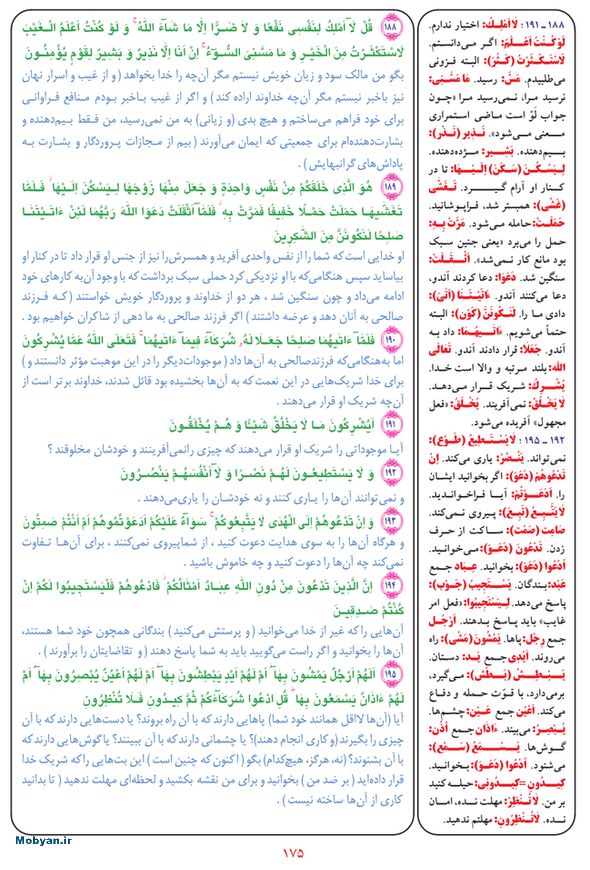 ۱۸۸ قُلْ لَا أَمْلِكُ لِنَفْسِى نَفْعًا وَ لَا ضَرًّا إِلَّا مَا شَاءَ اللَّهُ وَ لَوْ كُنْتُ أَعْلَمُ الْغَيْبَ
لَاسْتَكْثَرْتُ مِنَ الْخَيْرِ وَ مَا مَسَّنِىَ السُّوءُ إِنْ أَنَا إِلَّا نَذِيرٌ وَ بَشِيرٌ لِقَوْمٍ يُؤْمِنُونَ
بگو من مالک سود و زیان خویش نیستم مگر آن‌چه را خدا بخواهد ( و از غیب و اسرار نهان
نیز باخبر نیستم مگر آن‌چه خداوند اراده کند ) و اگر از غیب باخبر بودم منافع فراوانی
برای خود فراهم می‌ساختم و هیچ بدی (و زیانی) به من نمی‌رسید، من فقط بیم‌دهنده و
بشارت‌دهنده‌ام برای جمعیتی که ایمان می‌آورند ( بیم از مجازات پروردگار و بشارت به
پاداش‌های گرانبهایش ) .
۱۸۹ هُوَ الَّذِى خَلَقَكُمْ مِنْ نَفْسٍ وَاحِدَةٍ وَ جَعَلَ مِنْهَا زَوْجَهَا لِيَسْكُنَ إِلَيْهَا فَلَمَّا
تَغَشَّيهَا حَمَلَتْ حَمْلًا خَفِيفًا فَمَرَّتْ بِهِ فَلَمَّا أَثْقَلَتْ دَعَوَا اللَّهَ رَبَّهُمَا لَئِنْ ءَاتَيْتَنَا
صَلِحًا لَنَكُونَنَّ مِنَ الشَّكِرِينَ
او خدایی است که شما را از نفس واحدی آفرید و همسرش را نیز از جنس او قرار داد تا در کنار او
بیاساید سپس هنگامی‌که با او نزدیکی کرد حملی سبک برداشت که با وجود آن به کارهای خود
ادامه می‌داد و چون سنگین شد ، هر دو از خداوند و پروردگار خویش خواستند (که فرزند
صالحی به آنان دهد و عرضه داشتند ) اگر فرزند صالحی به ما دهی از شاکران خواهیم بود .
۱۹۰ فَلَمَّا ءَاتَيهُمَا صَلِحًا جَعَلَا لَهُ شُرَكَاءَ فِيمَا ءَاتَيهُمَا فَتَعَلَى اللَّهُ عَمَّا يُشْرِكُونَ
اما به‌هنگامی‌که فرزندصالحی به آن‌ها داد (موجودات‌دیگر را در این موهبت مؤثر دانستند و)
برای خدا شریک‌هایی در این نعمت که به آن‌ها بخشیده بود قائل شدند، خداوند برتر است از
آن‌چه شریک او قرار می‌دهند .
۱۹۱ أَيُشْرِكُونَ مَا لَا يَخْلُقُ شَيْئًا وَ هُمْ يُخْلَقُونَ
آیا موجوداتی را شریک او قرار می‌دهند که چیزی رانمی‌آفرینند و خودشان مخلوقند ؟
۱۹۲ وَ لَا يَسْتَطِيعُونَ لَهُمْ نَصْرًا وَ لَا أَنْفُسَهُمْ يَنْصُرُونَ
و نمی‌توانند آن‌ها را یاری کنند و نه خودشان را یاری‌می‌دهند .
۱۹۳ وَ إِنْ تَدْعُوهُمْ إِلَى الْهُدَى لَا يَتَّبِعُوكُمْ سَوَاءٌ عَلَيْكُمْ أَدَعَوْتُمُوهُمْ أَمْ أَنْتُمْ صَمِتُونَ
و هرگاه آن‌ها را به سوی هدایت دعوت کنید ، از شماپیروی نمی‌کنند ، برای آن‌ها تفاوت
نمی‌کند چه آن‌ها را دعوت کنید و چه خاموش باشید .
۱۹۴ إِنَّ الَّذِينَ تَدْعُونَ مِنْ دُونِ اللَّهِ عِبَادٌ أَمْثَالُكُمْ فَادْعُوهُمْ فَلْيَسْتَجِيبُوا لَكُمْ إِنْ
كُنْتُمْ صَدِقِينَ
آن‌هایی را که غیر از خدا می‌خوانید ( و پرستش می‌کنید ) بندگانی همچون خود شما هستند،
آن‌ها را بخوانید و اگر راست می‌گویید باید به شما پاسخ دهند ( و تقاضایتان را برآورند ) .
۱۹۵ أَلَهُمْ أَرْجُلٌ يَمْشُونَ بِهَا أَمْ لَهُمْ أَيْدٍ يَبْطِشُونَ بِهَا أَمْ لَهُمْ أَعْيُنٌ يُبْصِرُونَ بِهَا أَمْ
لَهُمْ ءَاذَانٌ يَسْمَعُونَ بِهَا قُلِ ادْعُوا شُرَكَاءَكُمْ ثُمَّ كِيدُونِ فَلَا تُنْظِرُونِ
آیا (آن‌ها لااقل همانند خود شما) پاهایی دارند که با آن راه بروند؟ یا دست‌هایی دارند که با آن
چیزی را بگیرند (و کاری انجام دهند)؟ یا چشمانی دارند که با آن ببینند؟ یا گوش‌هایی دارند که
با آن بشنوند؟ (نه، هرگز، هیچ‌کدام) بگو (اکنون که چنین است) این بت‌هایی را که شریک خدا
قرار داده‌اید ( بر ضد من ) بخوانید و برای من نقشه بکشید و لحظه‌ای مهلت ندهید ( تا بدانید
کاری از آن‌ها ساخته نیست ) .
۱۸۸ ـ ۱۹۱ : لَا أَمْلِكُ: اختیار ندارم.
لَوْ كُنْتُ أَعْلَمُ: اگر می‌دانستم.
لَاسْتَكْثَرْتُ (كَثُرَ): البته فزونی
می‌طلبیدم. مَسَّ: رسید. مَا مَسَّنِىَ:
نرسید مرا، نمی‌رسید مرا «چون
جواب لَوْ است ماضی استمراری
معنی می‌شود». نَذِير (نَذَرَ):
بیم‌دهنده. بَشِير: مژده‌دهنده.
لِيَسْكُنَ (سَكَنَ) إِلَيْهَا: تا در
کنار او آرام گیرد. تَغَشَّى
(غَشِىَ): همبستر شد، فراپوشانید.
حَمَلَتْ: حامله می‌شود. مَرَّتْ بِهِ:
حمل را می‌برد «یعنی جنین سبک
بود مانع کار نمی‌شد». أَثْقَلَتْ:
سنگین شد. دَعَوَا: دعا کردند آندو،
دعا می‌کنند آندو. ءَاتَيْتَنَا (أَتَىَ):
دادی ما را. لَنَكُونَنَّ (كَوَنَ): البته
حتماً می‌شویم. ءَاتَيهُمَا: داد به
آندو. جَعَلَا: قرار دادند آندو. تَعَالَى
اللَّهُ: بلند مرتبه و والا است خدا.
يُشْرِكُ: شریک قرار می‌دهد.
لَا يَخْلُقُ: نمی‌آفریند. يُخْلَقُ: «فعل
مجهول» آفریده می‌شود.
۱۹۲ ـ ۱۹۵ : لَا يَسْتَطِيعُ (طَوَعَ):
نمی‌تواند. يَنْصُرُ: یاری می‌کند. إِنْ
تَدْعُوهُمْ (دَعَوَ): اگر بخوانید ایشان
را. أَدَعَوْتُمْ: آیا فراخواندید.
لَا يَتَّبِعُ (تَبِعَ): پیروی نمی‌کند.
صَامِت (صَمَتَ): ساکت از حرف
زدن. تَدْعُونَ (دَعَوَ): می‌خوانید.
أُدْعُوا (دَعَوَ): بخوانید. عِبَاد جمع
عَبْد: بندگان. يَسْتَجِيبُ (جَوَبَ):
پاسخ می‌دهد. لِيَسْتَجِيبُوا: «فعل امر
غایب» باید پاسخ بدهند. أَرْجُل
جمع رِجْل: پاها. يَمْشُونَ (مَشَىَ): راه
می‌روند. أَيْدِى جمع يَد: دستان.
يَبْطِشُ (بَطَشَ): می‌گیرد،
برمی‌دارد، با قوّت حمله و دفاع
می‌کند. أَعْيُن جمع عَيْن: چشم‌ها.
يُبْصِرُ: می‌بیند. ءَاذَان جمع أُذُن:
گوش‌ها. يَسْمَعُ (سَمِعَ):
می‌شنود. أُدْعُوا (دَعَوَ): بخوانید.
كِيدُونِ = كِيدُونِى: حیله کنید
بر من. لَا تُنْظِرْ: مهلت نده، امان
نده. لَا تُنْظِرُونِ: مهلتم ندهید.
Mobyan.ir
۱۷۵